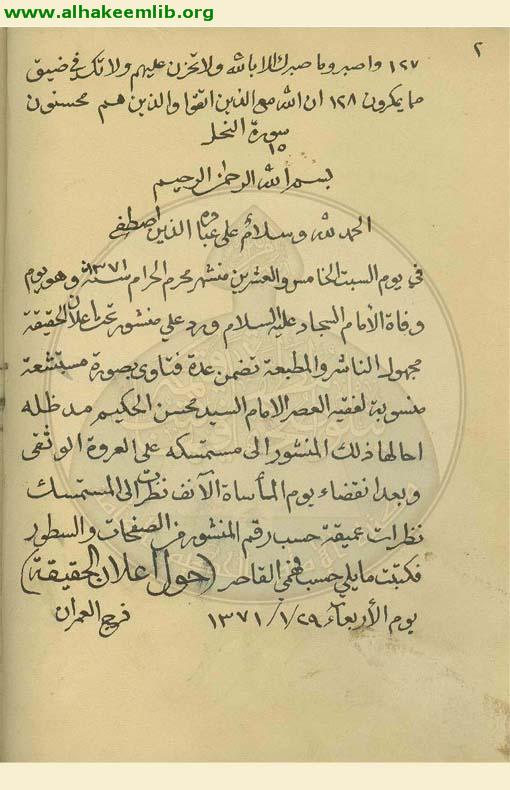 www.alhakeemlib.org
٢
١٢٧ واصبر وما صبرك الا بالله ولا تحزن عليهم ولا تك في ضيق
مما يمكرون ١٢٨ ان الله مع الذين اتقوا والذين هم محسنون
سورة النحل
١٥
بسم الله الرحمن الرحيم
الحمد لله وسلام على عباده الذين اصطفى
في يوم السبت الخامس والعشرين من شهر محرم الحرام سنة ١٣٧١ وهو يوم
وفاة الأمام السجاد عليه السلام ورد علي منشور تحت اعلان الحقيقة
مجهول الناشر والمطبعة تضمن عدة فتاوى بصورة مستبشعة
منسوبة لفقيه العصر الامام السيد محسن الحكيم مد ظله
احالها ذلك المنشور الى مستمسكه على العروة الوثقى
وبعد انقضاء يوم المأساة الآنف نظرت الى المستمسك
نظرات عميقة حسب رقم المنشور من الصفحات والسطور
فكتبت ما يلي حسب فهمي القاصر (حول اعلان الحقيقة)
يوم الأربعاء ١٣٧١/١/٢٩ فرج العمران